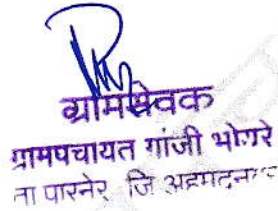 ग्रामसेवक
ग्रामपंचायत गांजी भोयरे
ता पारनेर जि अहमदनगर